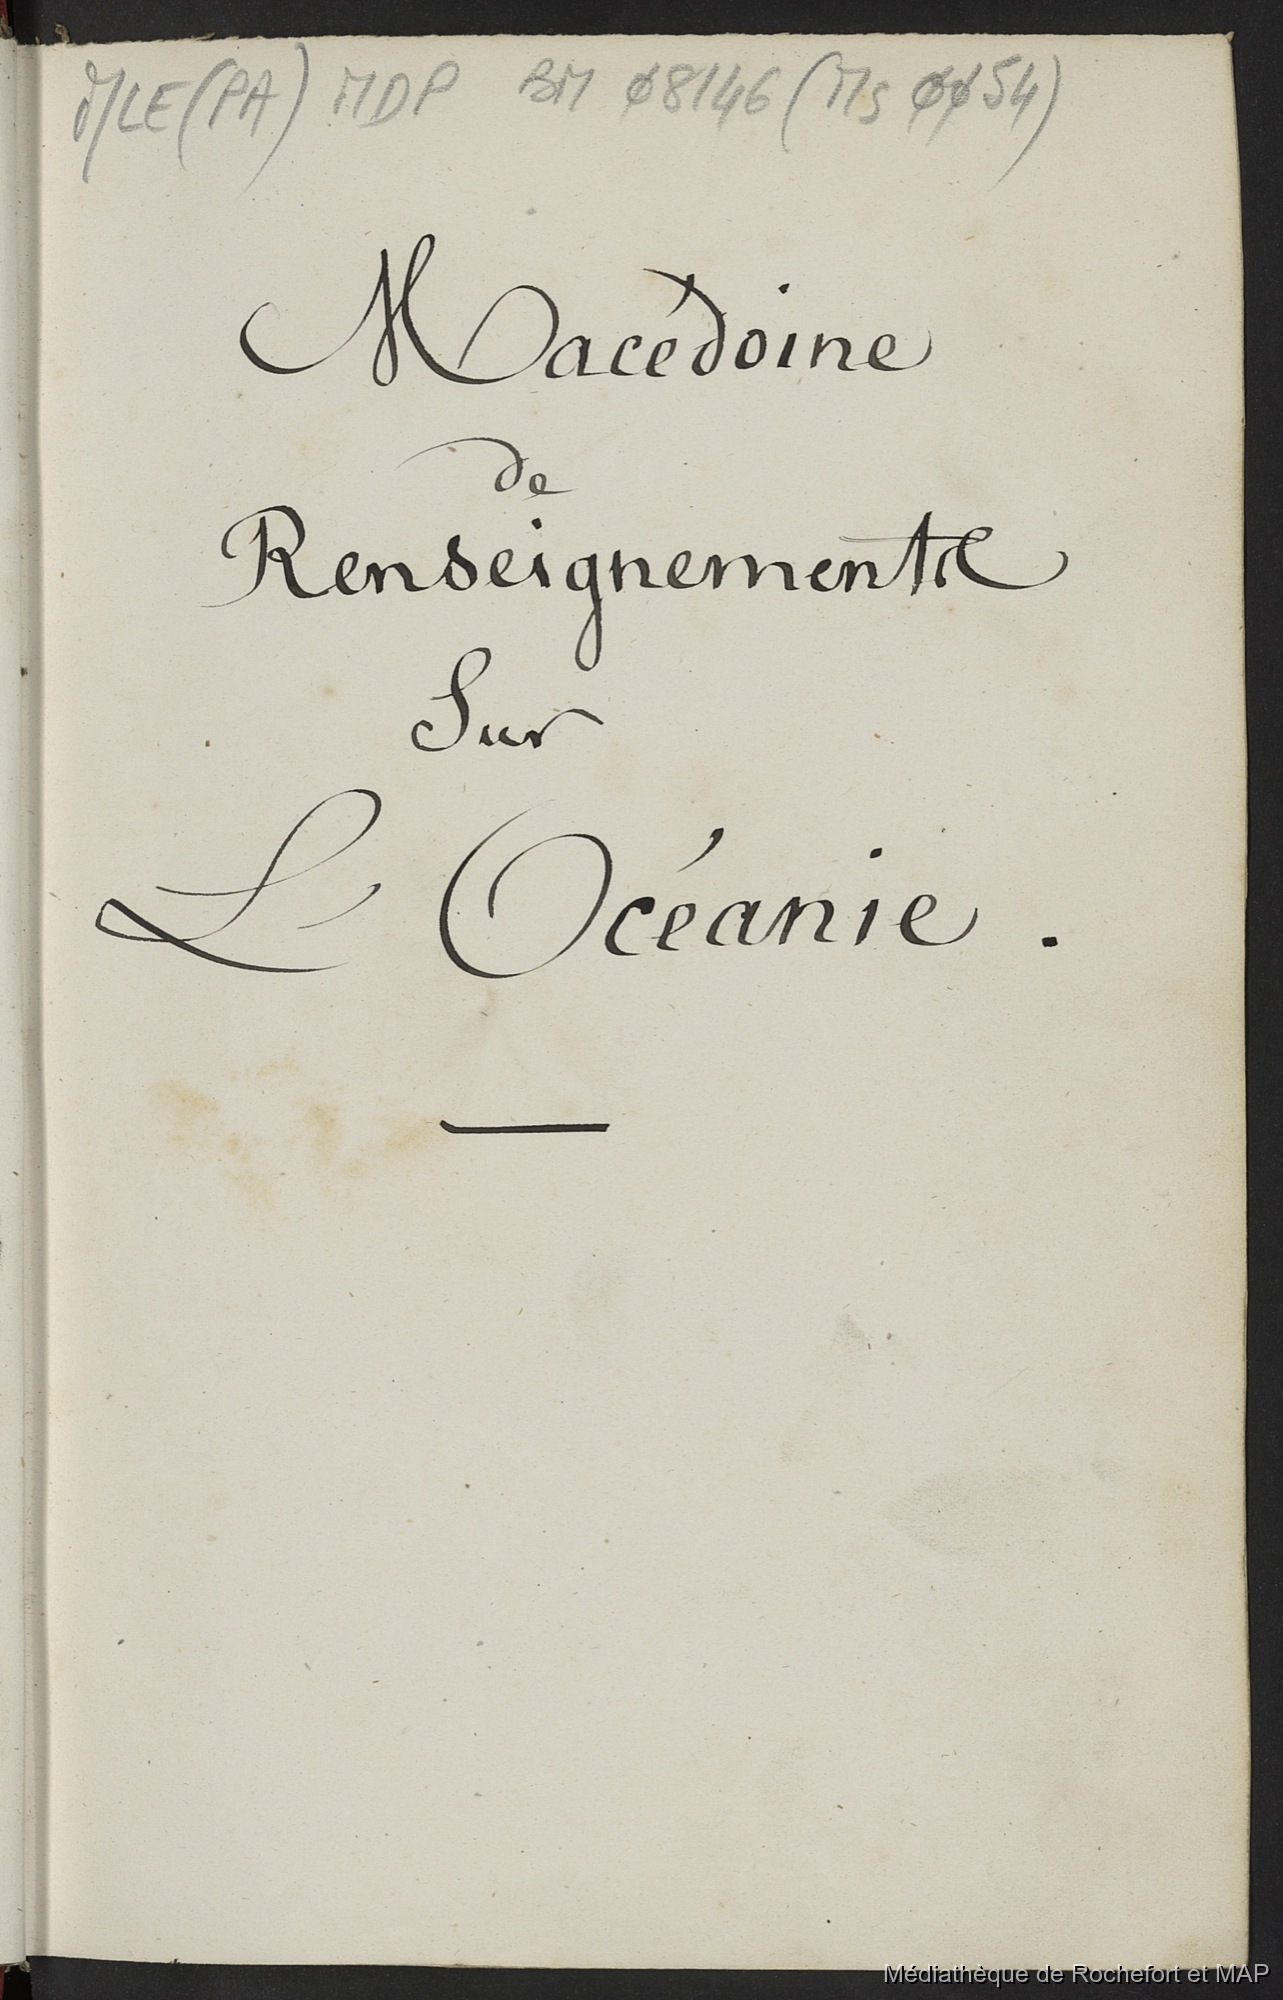 LE (PA) MDP BM 08146 (Ms 0054)
Macédoine
de
Renseignements
Sur
L'Océanie.
Médiathèque de Rochefort et MAP